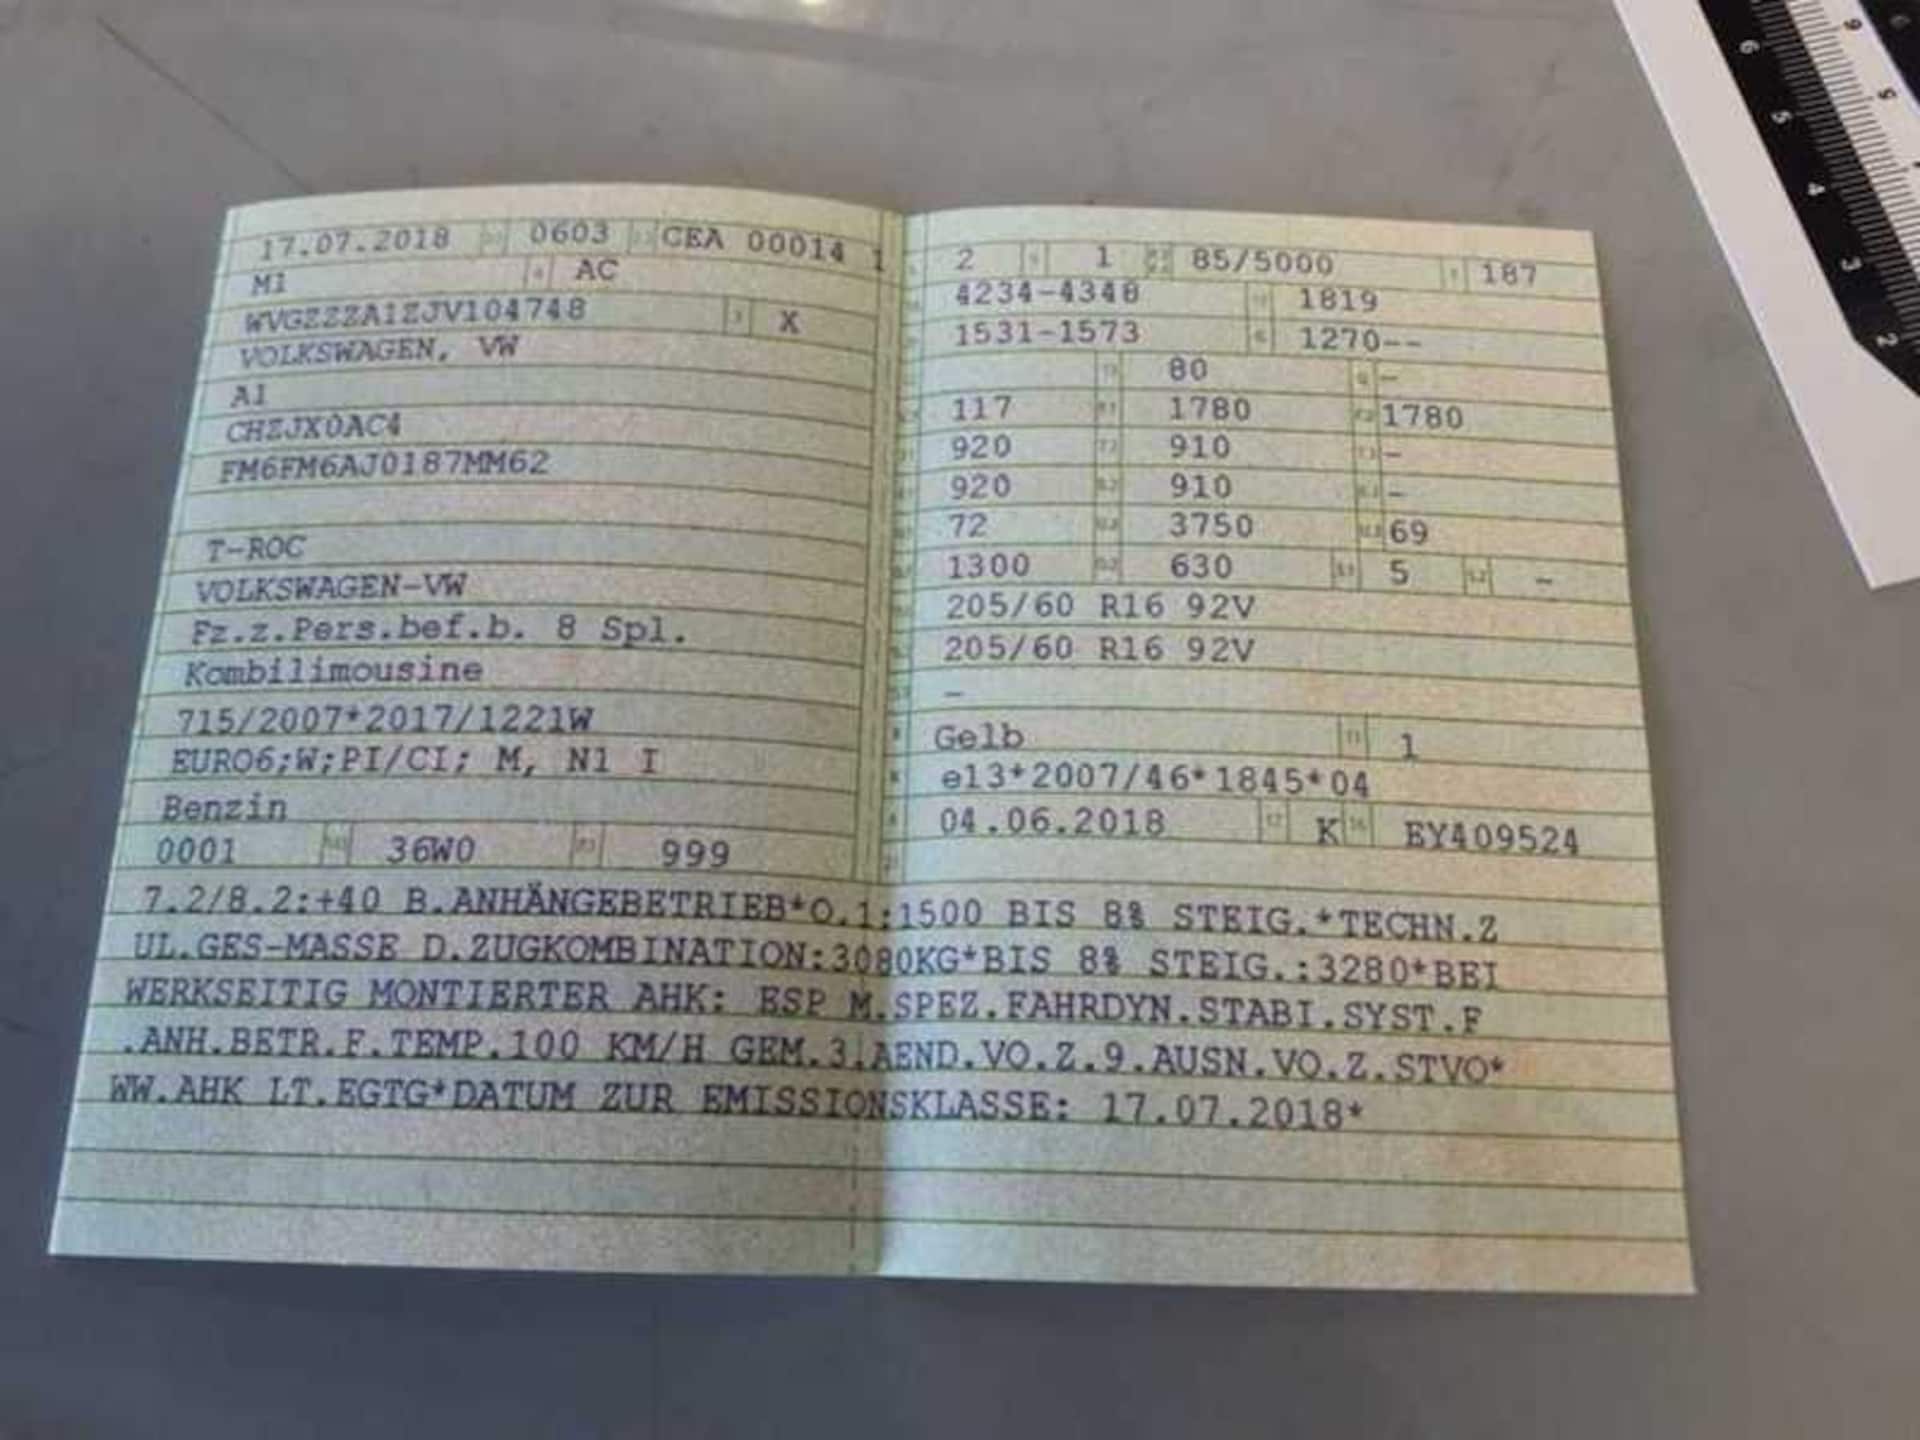 17.07.2018 0603 CEA 00014 1
M1 AC
WVGZZZA1ZJV104748 X
VOLKSWAGEN, VW
A1
CHZJX0AC4
FM6FM6AJ0187MM62
T-ROC
VOLKSWAGEN-VW
Fz.z.Pers.bef.b. 8 Spl.
Kombilimousine
715/2007*2017/1221W
EURO6;W;PI/CI; M, N1 I
Benzin
0001 36W0 999
2 1 85/5000 187
4234-4348 1819
1531-1573 1270--
80 -
117 1780 1780
920 910 -
920 910 -
72 3750 69
1300 630 5 -
205/60 R16 92V
205/60 R16 92V
-
Gelb 1
e13*2007/46*1845*04
04.06.2018 K EY409524
7.2/8.2:+40 B.ANHÄNGEBETRIEB*O.1:1500 BIS 8% STEIG.*TECHN.Z
UL.GES-MASSE D.ZUGKOMBINATION:3080KG*BIS 8% STEIG.:3280*BEI
WERKSEITIG MONTIERTER AHK: ESP M.SPEZ.FAHRDYN.STABI.SYST.F
.ANH.BETR.F.TEMP.100 KM/H GEM.3.AEND.VO.Z.9.AUSN.VO.Z.STVO*
WW.AHK LT.EGTG*DATUM ZUR EMISSIONSKLASSE: 17.07.2018*
6 5 4 3 2
6 5